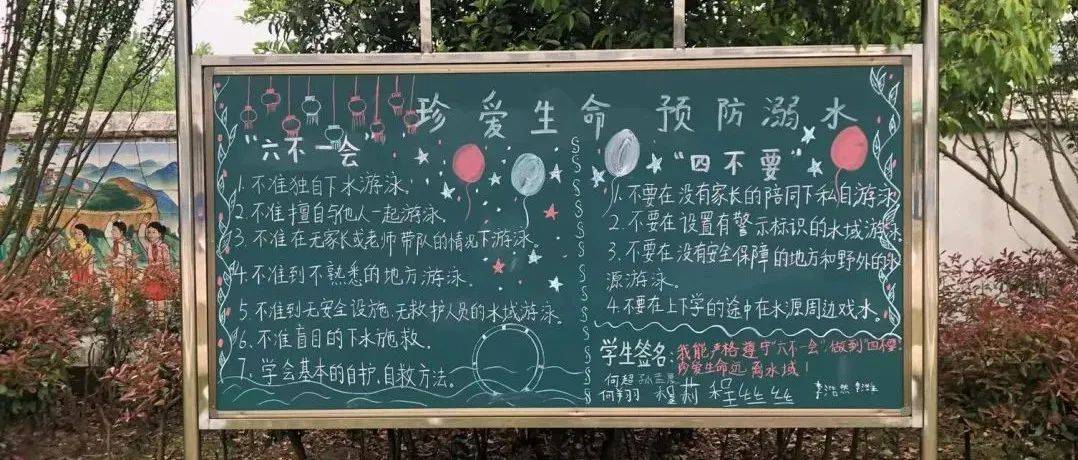 珍爱生命 预防溺水
“六不一会”
1. 不准独自下水游泳。
2. 不准擅自与他人一起游泳。
3. 不准在无家长或老师带队的情况下游泳。
4. 不准到不熟悉的地方游泳。
5. 不准到无安全设施、无救护人员的水域游泳。
6. 不准盲目的下水施救。
7. 学会基本的自护、自救方法。
“四不要”
1. 不要在没有家长的陪同下私自游泳
2. 不要在设置有警示标识的水域游泳
3. 不要在没有安全保障的地方和野外的水
源游泳。
4. 不要在上下学的途中在水源周边戏水。
学生签名:
我能严格遵守“六不一会”做到“四不要”
珍爱生命远离水域！
何超
何翔 程莉 程丝丝
李浩然